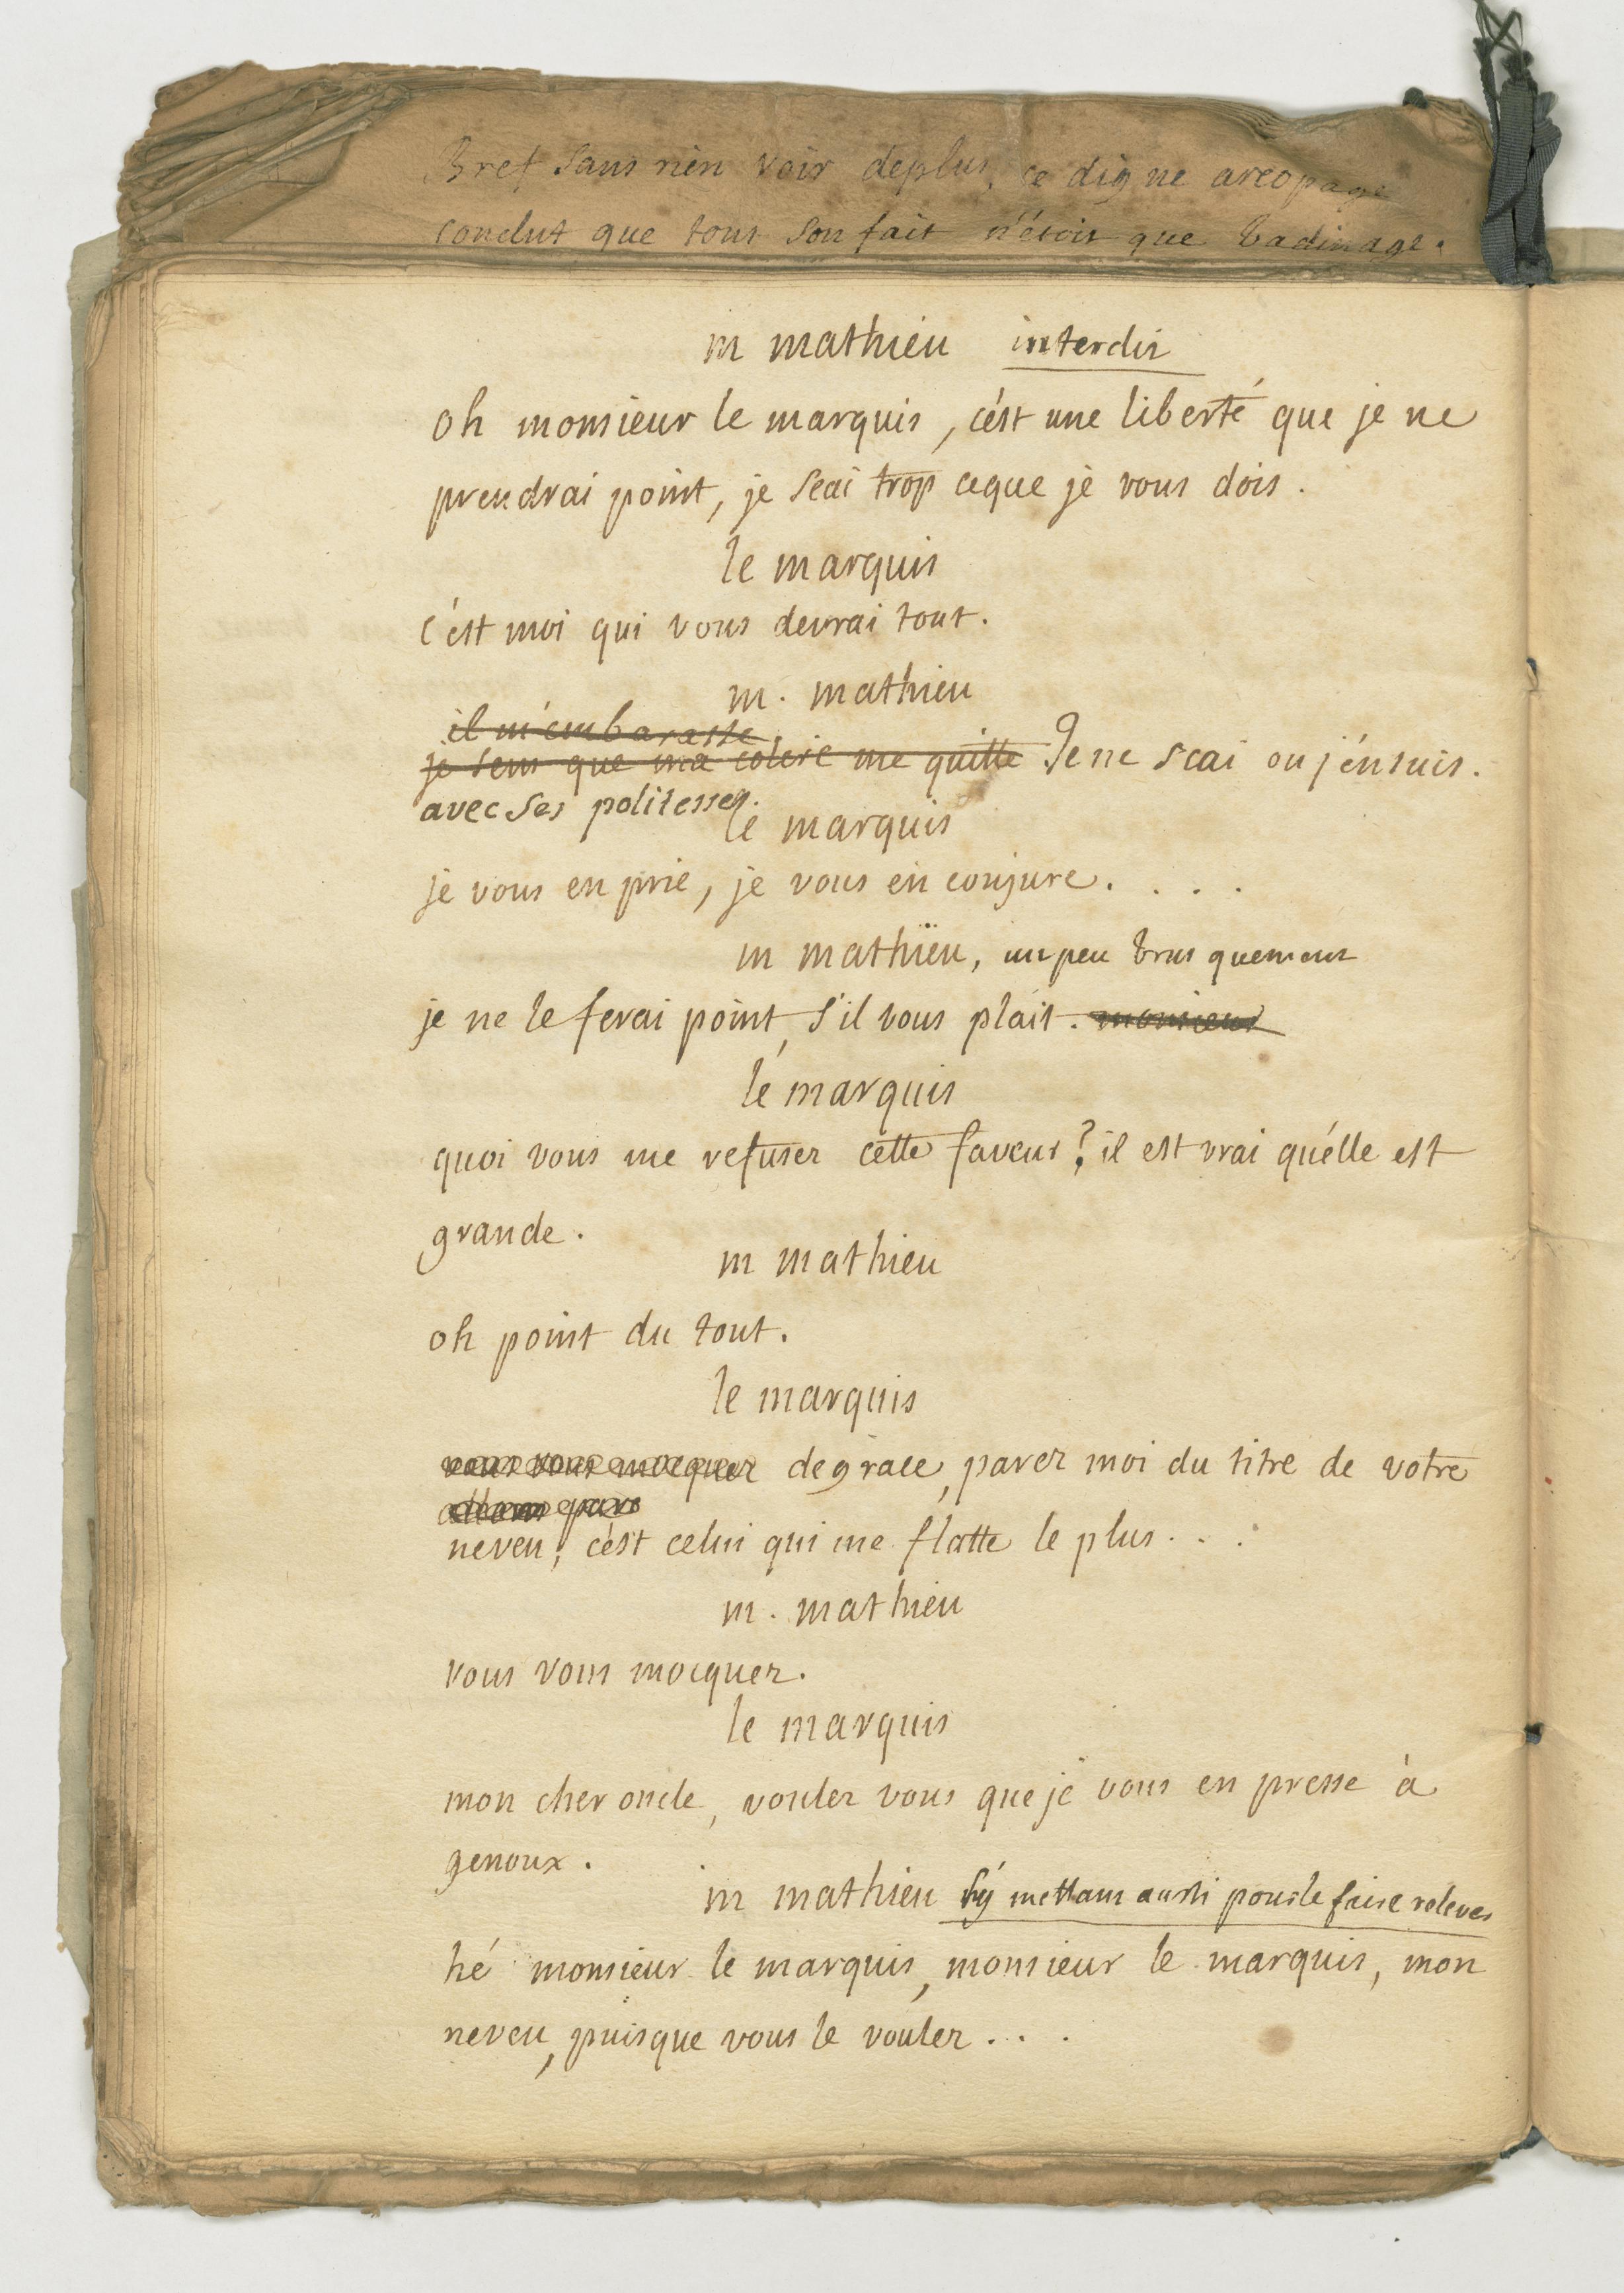 Bref sans rien voir deplus, ce digne areopage
conclut que tout son fait n'étoit que badinage.
m mathieu interdit
oh monsieur le marquis, c'est une liberté que je ne
prendrai point, je scai trop ceque je vous dois.
le marquis
c'est moi qui vous devrai tout.
m. mathieu
il m'embarasse
je sens que ma colere me quitte Je ne scai ou j'en suis.
avec ses politesses.
le marquis
je vous en prie, je vous en conjure. . . .
m mathieu, un peu brusquement
je ne le ferai point, s'il vous plait. monsieur
le marquis
quoi vous me refusez cette faveur? il est vrai qu'elle est
grande.
m mathieu
oh point du tout.
le marquis
vous vous mocquez degrace, parez moi du titre de votre
neveu, c'est celui qui me flatte le plus. . .
m. mathieu
vous vous mocquez.
le marquis
mon cher oncle, voulez vous que je vous en presse à
genoux.
m mathieu s'y mettant aussi pour le faire relever
hé monsieur le marquis, monsieur le marquis, mon
neveu, puisque vous le voulez. . .